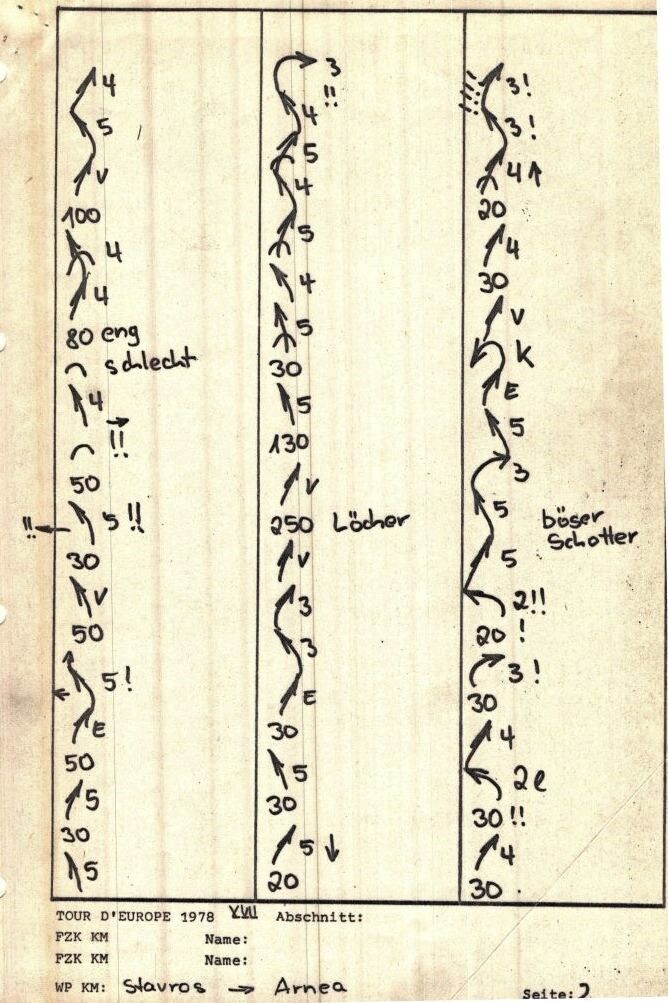 4
5
v
100
4
4
80 eng
schlecht
4
!!
50
!! 5 !!
30
v
50
5!
E
50
5
30
5
3
!!
4
5
4
5
4
5
30
5
130
v
250 Löcher
v
3
3
E
30
5
30
5
20
3!
3!
4
20
4
30
v
K
E
5
3
5
böser
Schotter
5
2!!
20 !
3!
30
4
2e
30!!
4
30
TOUR D'EUROPE 1978 XVII Abschnitt:
FZK KM Name:
FZK KM Name:
WP KM: Stavros → Arnea
Seite: